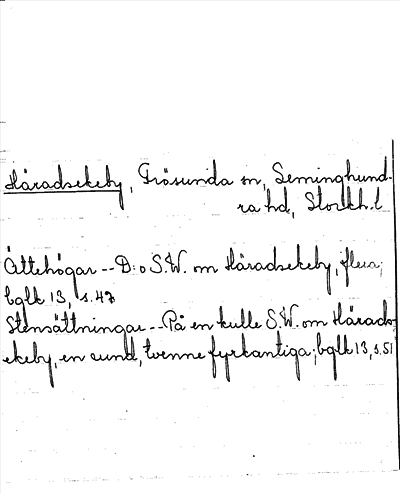 Häradsekeby, Frösunda sn, Seminghund-
ra hd, Stockh.l
Ättehögar -- D:o S.W. om Häradsekeby, flera;
bglk 13, s. 47
Stensättningar -- På en kulle S.W. om Härads-
ekeby, en rund, tvenne fyrkantiga; bglk 13, s. 51